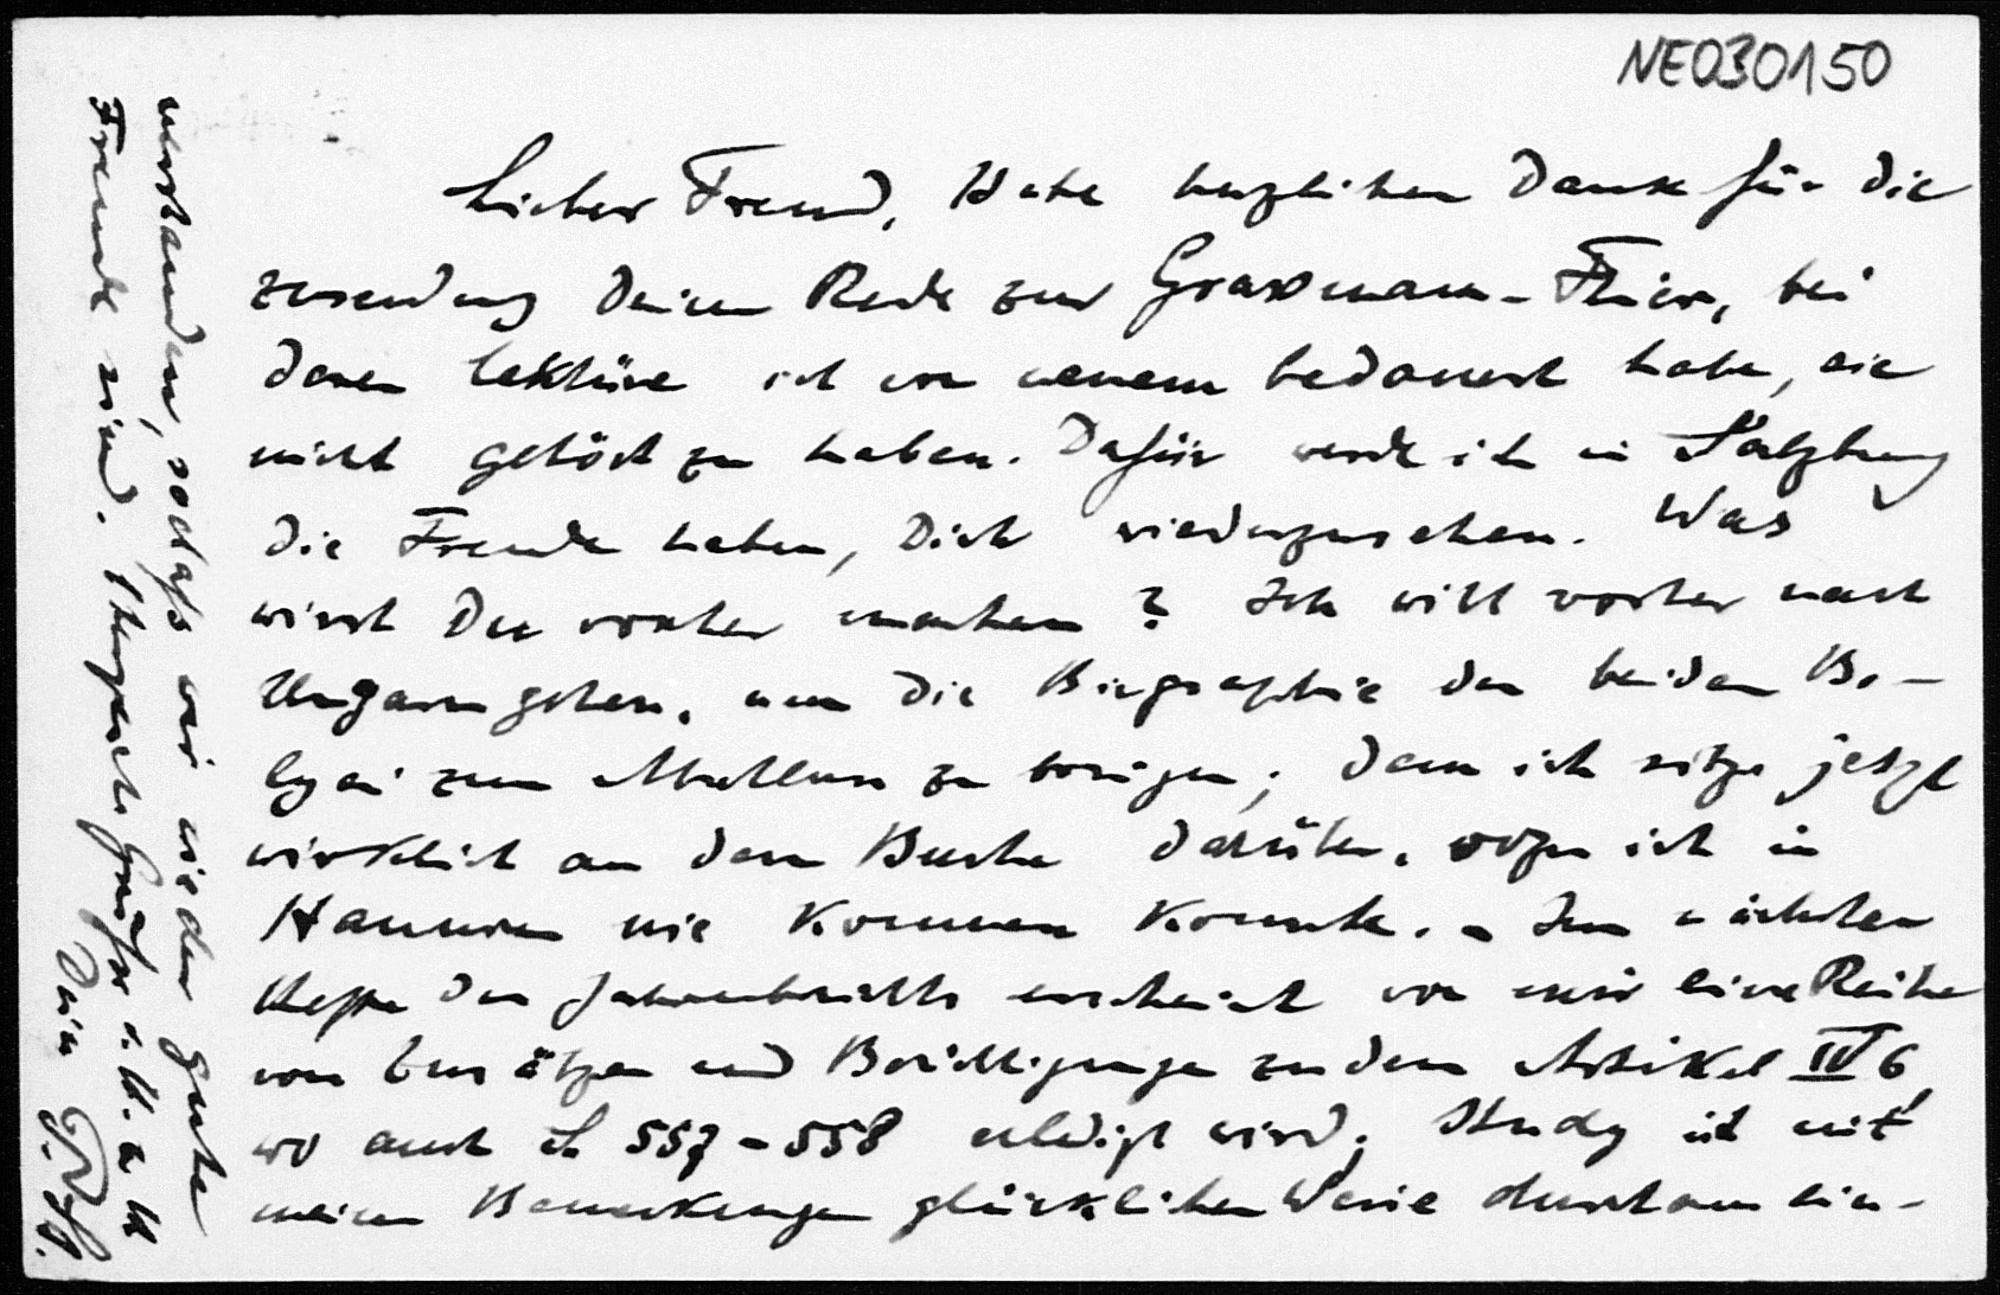 NE030150
Lieber Freund, Habe herzlichen Dank für die
Zusendung Deiner Rede zur Grassmann-Feier, bei
deren Lektüre ich von neuem bedauert habe, sie
nicht gehört zu haben. Dafür werde ich in Salzburg
die Freude haben, Dich wiederzusehen. Was
wirst Du vorher machen? Ich will vorher nach
Ungarn gehen, um die Biographie der beiden Bo-
lyai zum Abschluss zu bringen; denn ich sitze jetzt
wirklich an dem Buche darüber, wozu ich in
Hannover nie kommen konnte. - Im nächsten
Hefte des Jahresberichts erscheint von mir eine Reihe
von Zusätzen und Berichtigungen zu dem Artikel IV 6,
wo auch S. 557-558 erledigt wird; Study ist mit
meinen Bemerkungen glücklicher Weise durchaus ein-
verstanden, sodass wir wieder gute
Freunde sind. Herzliche Grüsse v. H. z. H.
Dein